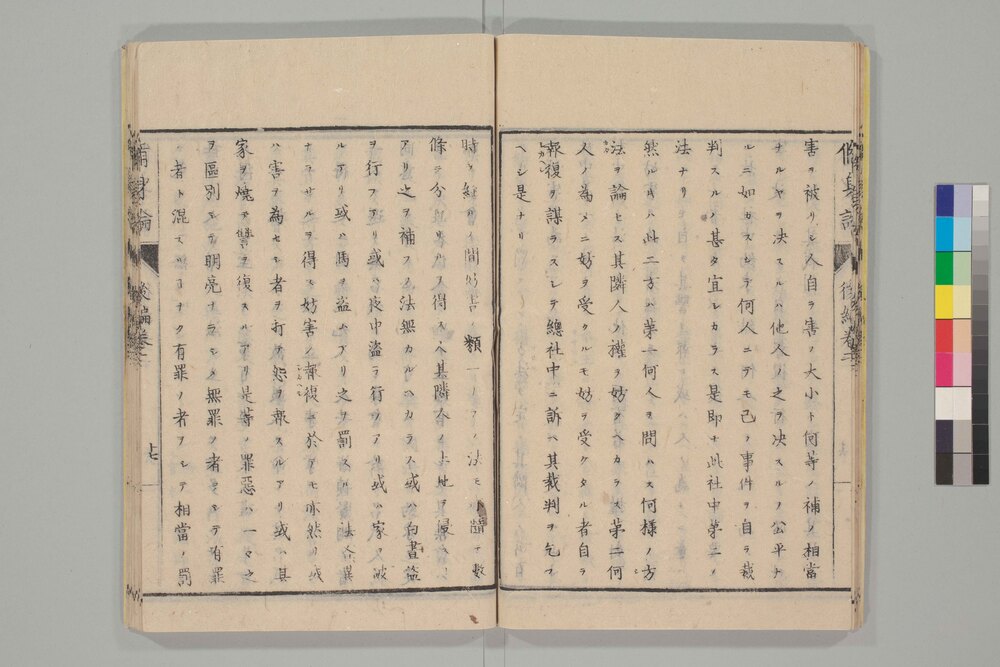 害ヲ被リシ人自ラ害ノ大小ト何等ノ補ノ相當
ナルヤヲ決スルハ他人ノ之ヲ決スルノ公平ナ
ルニ如カスシテ何人ニテモ己ノ事件ヲ自ラ裁
判スルハ甚タ宜シカラス是即チ此社中第二ノ
法ナリ
然ルキハ此二方ハ第一何人ヲ問ハス何様ノ方
法ヲ論セス其隣人ノ權ヲ妨クヘカラス第二何
人ノ為メニ妨ヲ受クルモ妨ヲ受クタル者自ラ
報復ヲ謀ラスシテ總社中ニ訴ヘ其裁判ヲ乞フ
ヘシ是ナリ
時ヲ經ルノ間妨害ノ類一ナラ法モ隨テ數
條ニ分レサルヲ得ス人其隣人ノ土地ヲ侵ス
アリ之ヲ補フノ法無カルヘカラス或ハ白晝盜
ヲ行フアリ或ハ夜中盜ヲ行フアリ或ハ家ヲ破
ルアリ或ハ馬ヲ盜ムアリ之ヲ罰スル法令異
ナラサルヲ得ス妨害ノ報復ニ於テモ亦然リ或
ハ害ヲ為セシ者ヲ打テ怨ヲ報スルアリ或ハ其
家ヲ燒テ讐ヲ復スルアリ是等ノ罪惡ハ一々之
ヲ區別シテ明亮ナラシメ無罪ノ者ヲシテ有罪
ノ者ト混スルナク有罪ノ者ヲシテ相當ノ罰
脩身論
後編卷二
十七